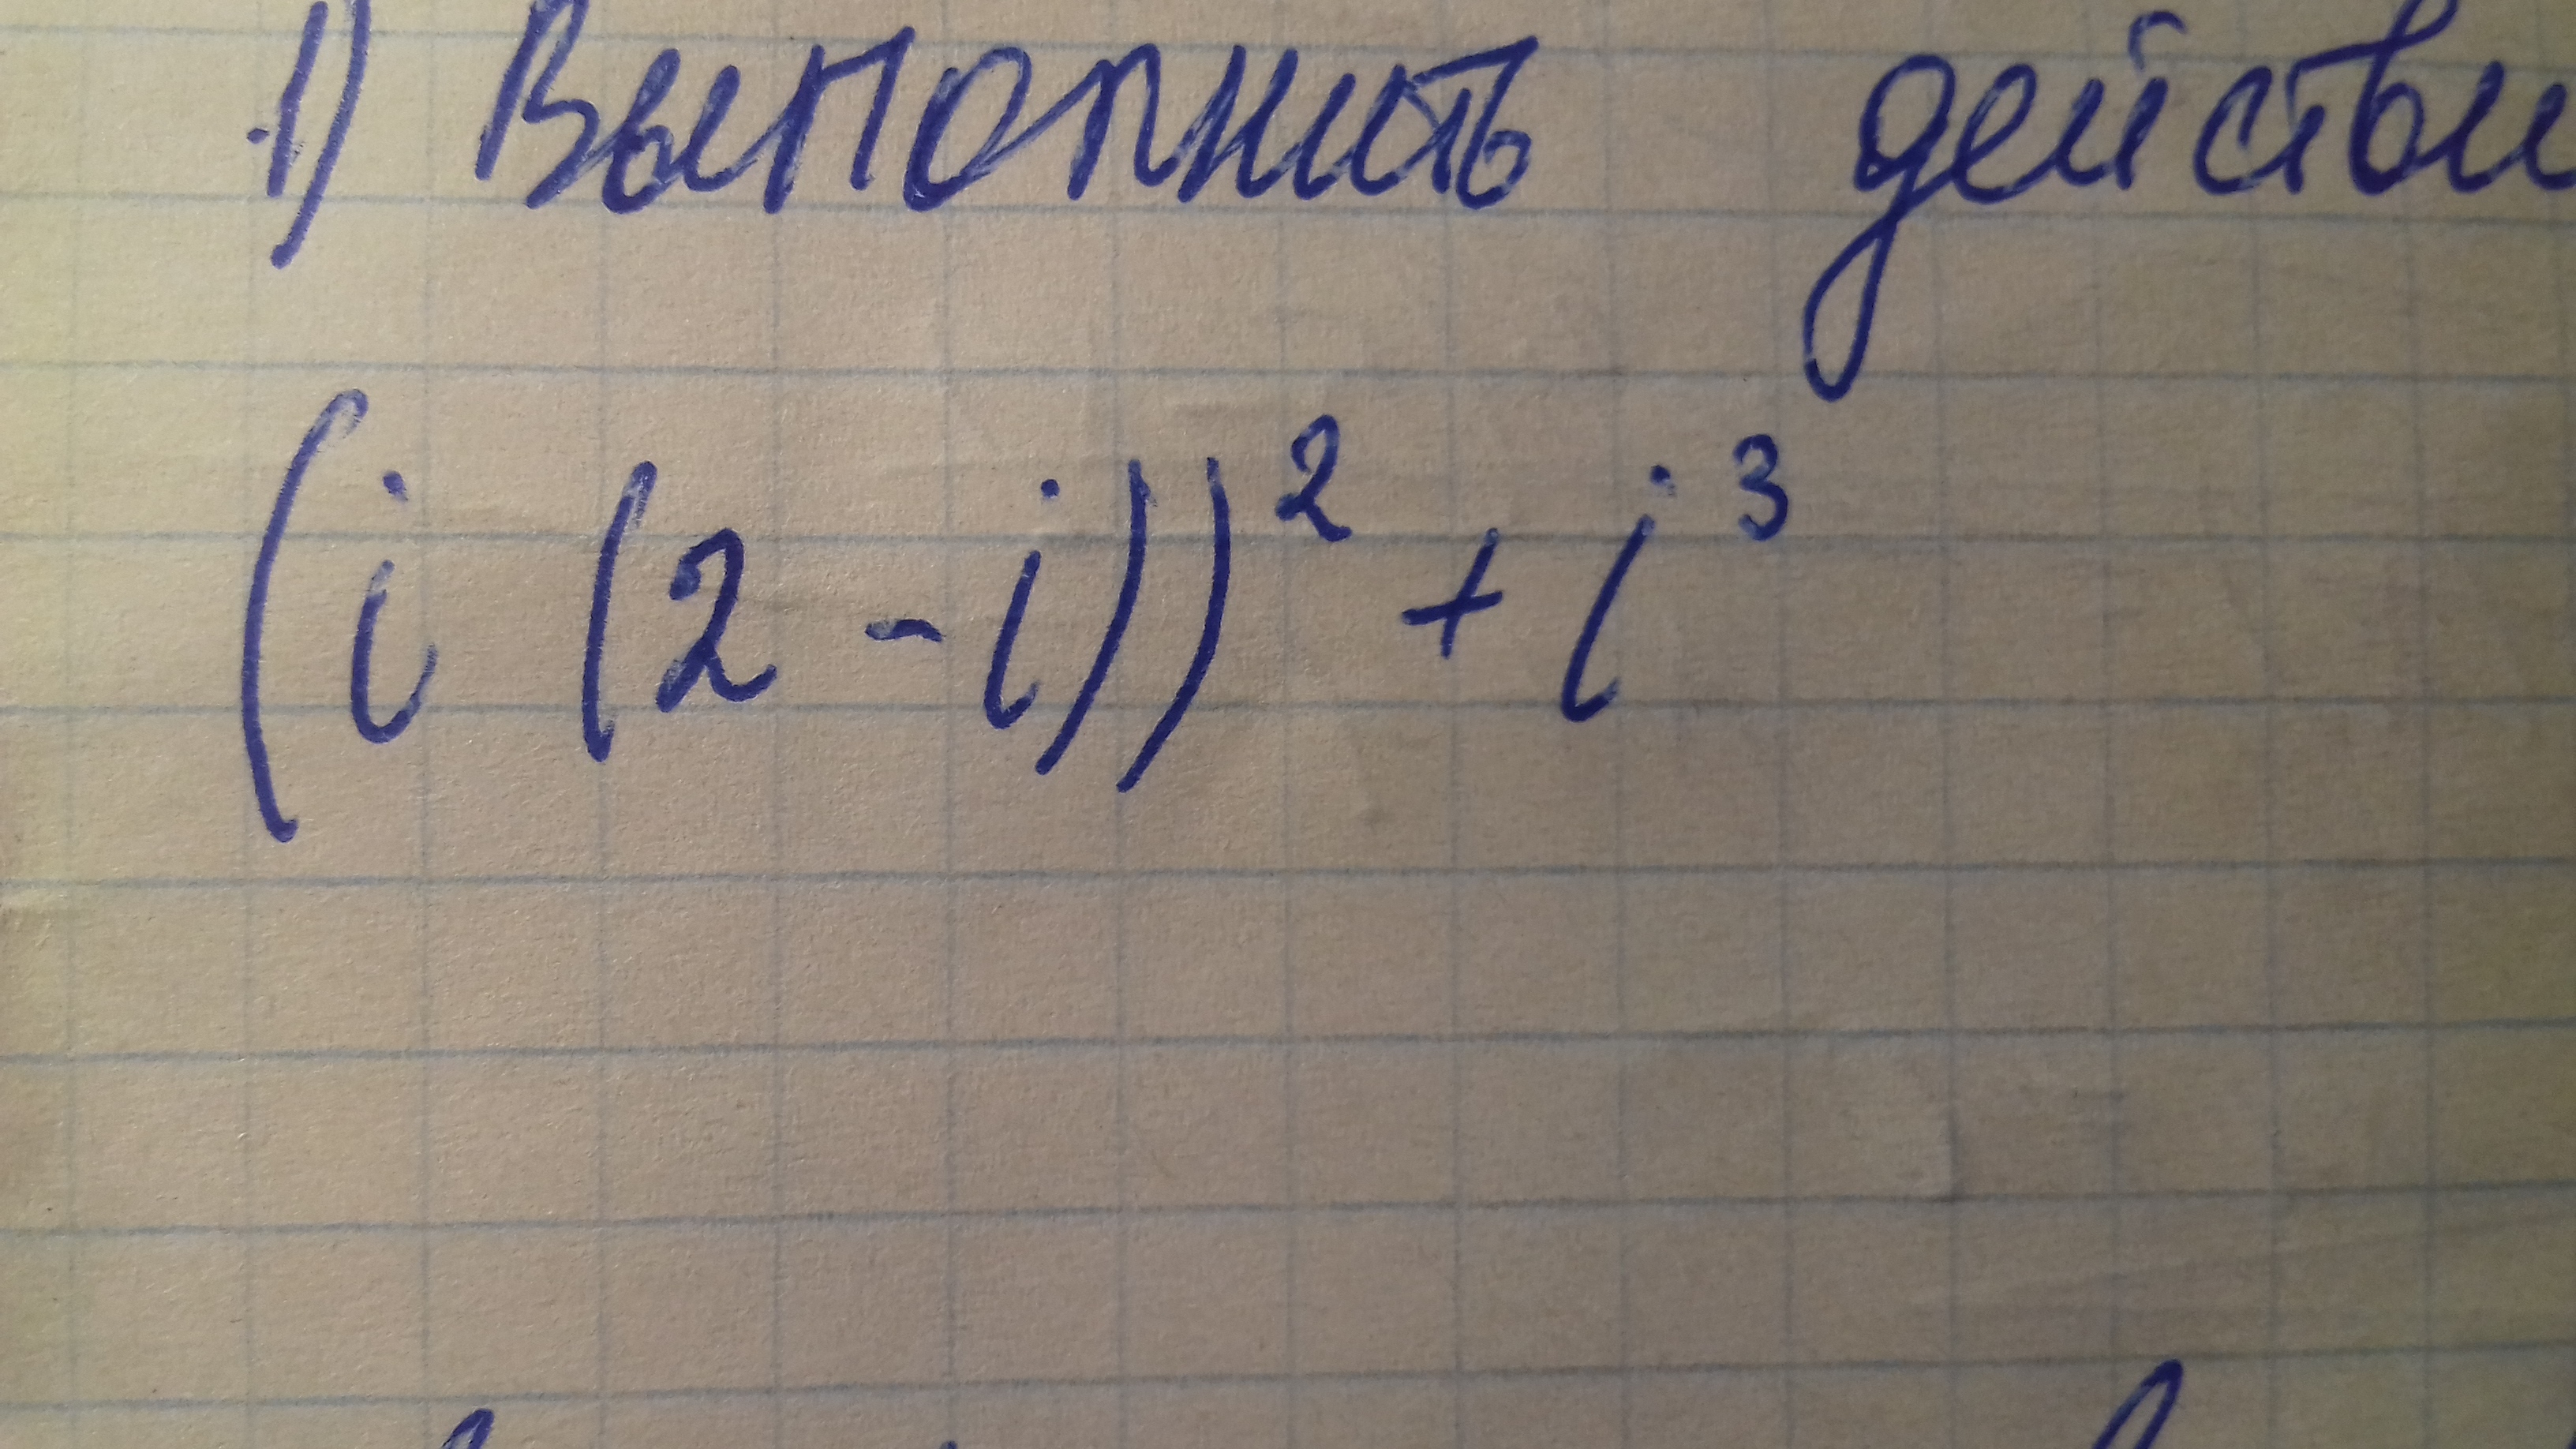 1) Выполнить действи
(i (2 - i))² + i³